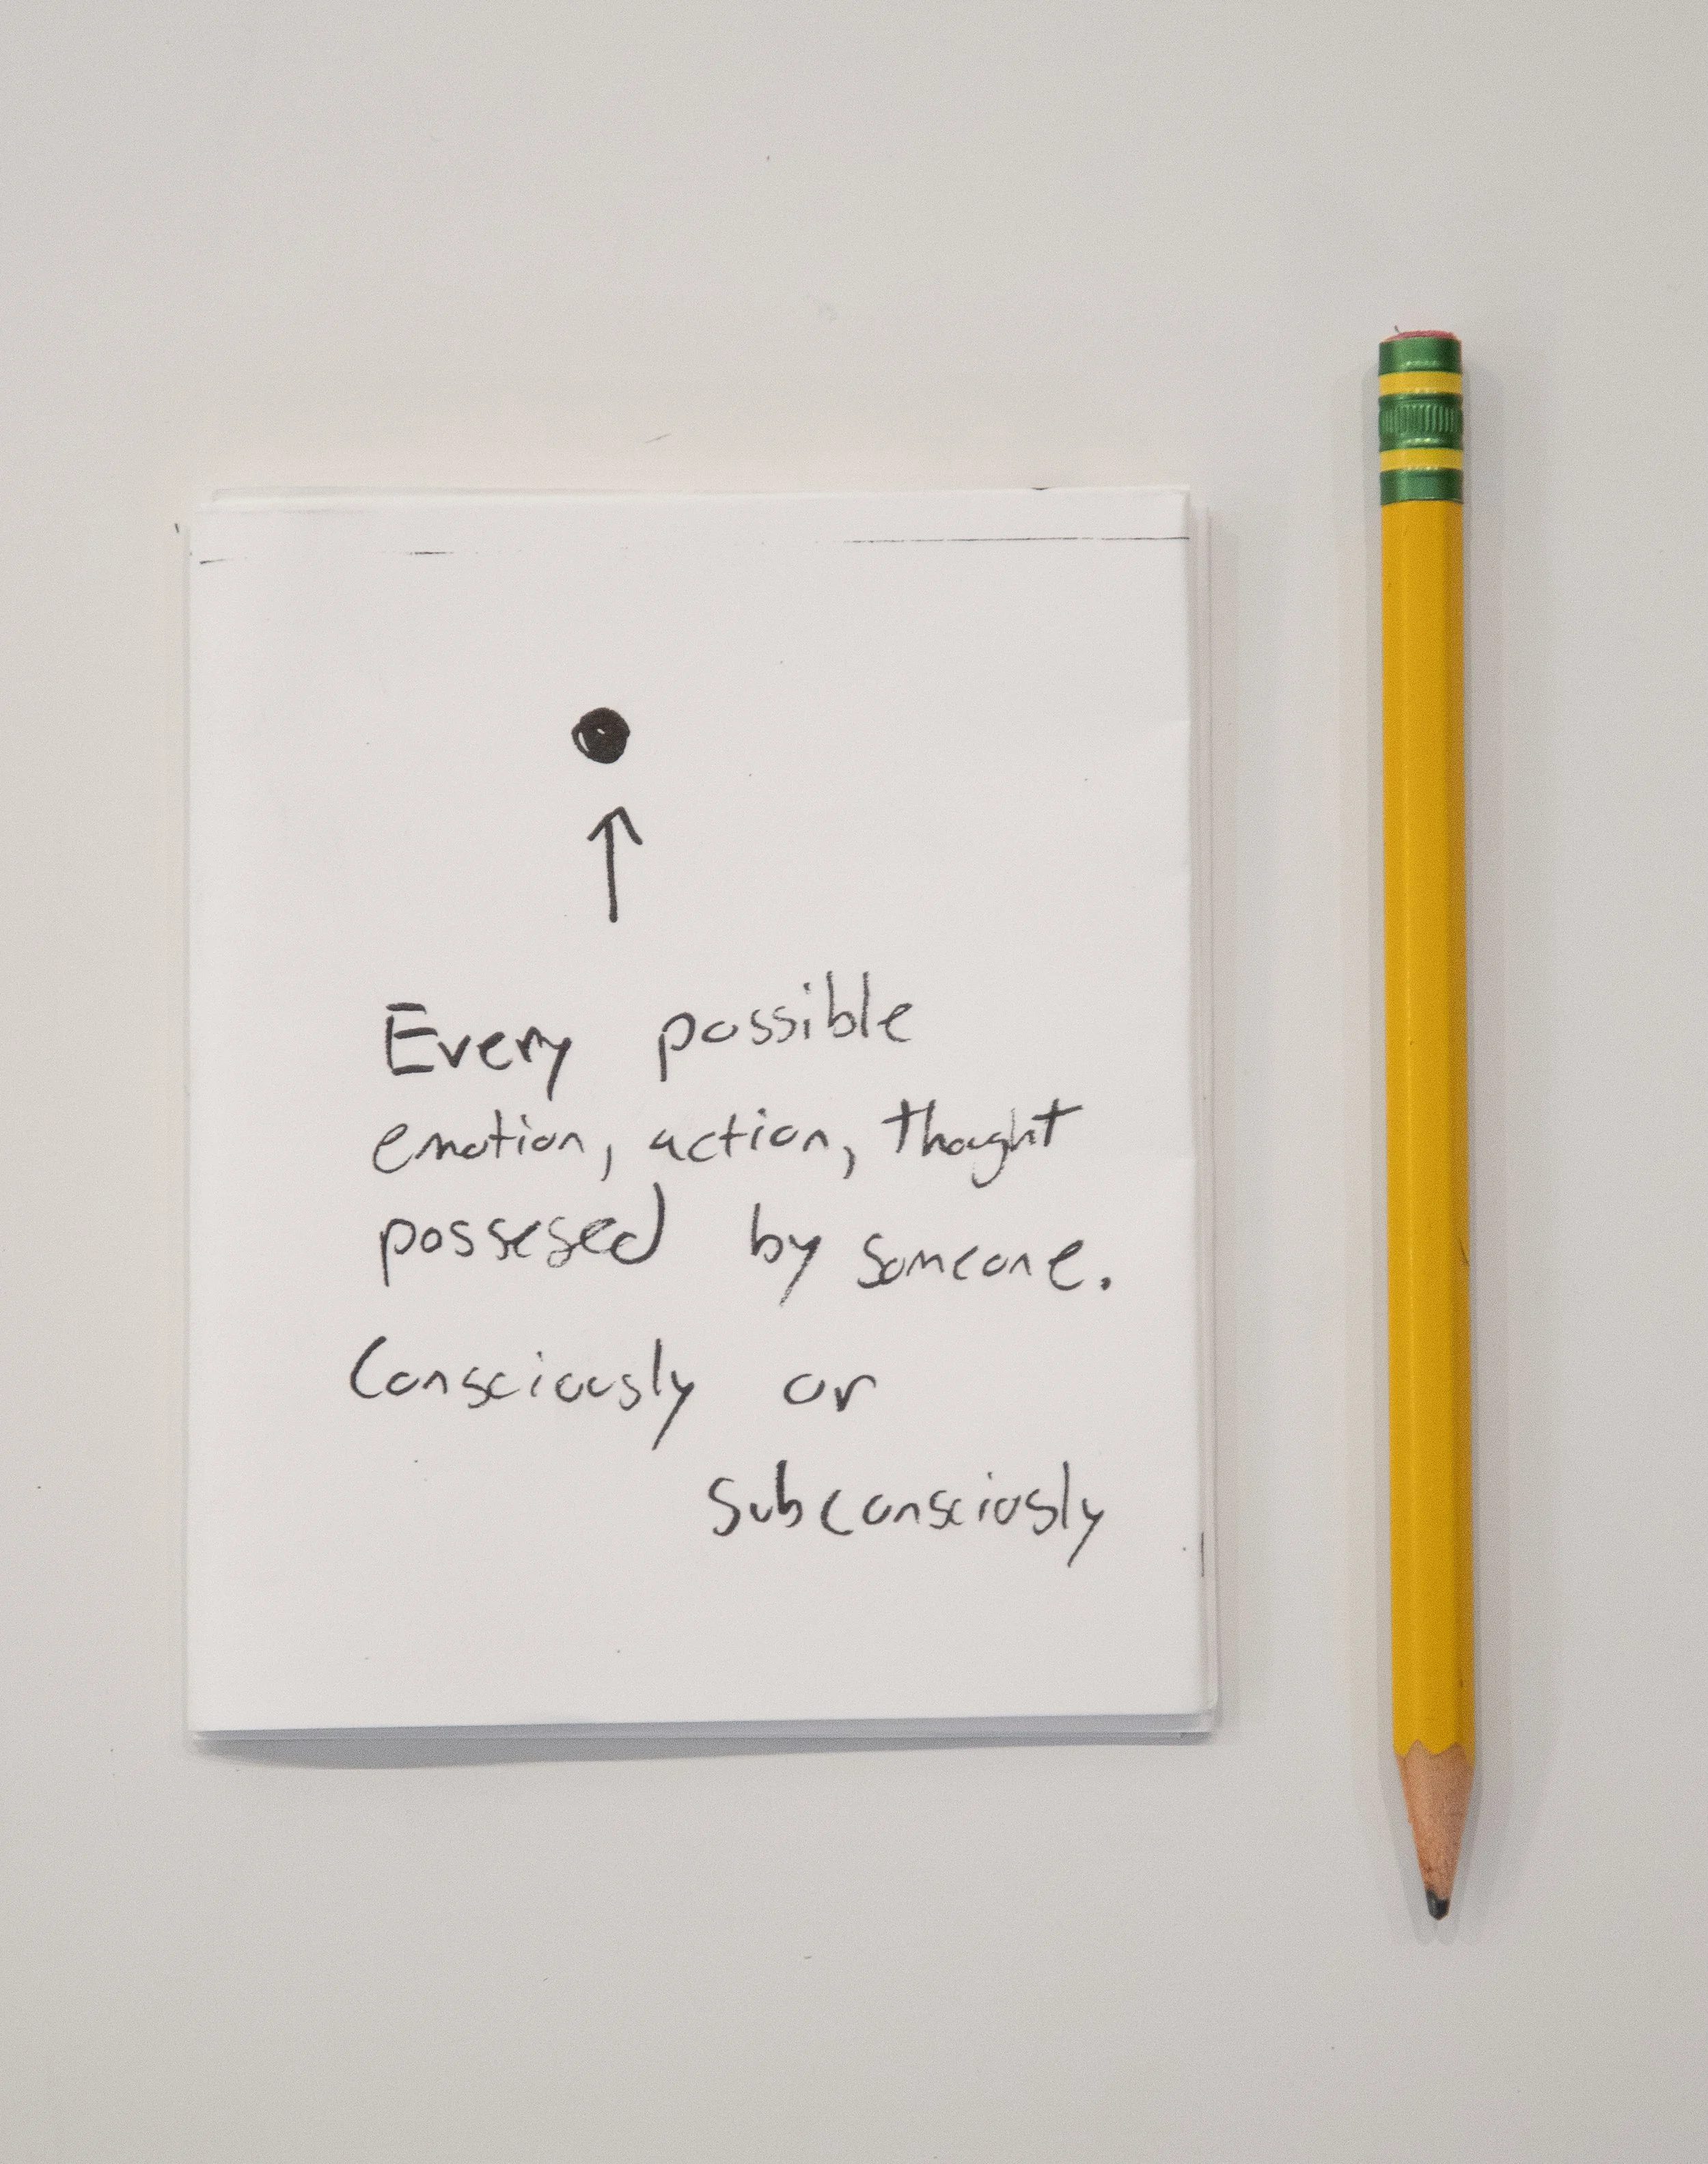 Every possible
emotion, action, thought
possesed by someone.
Consciously or
subconsciosly